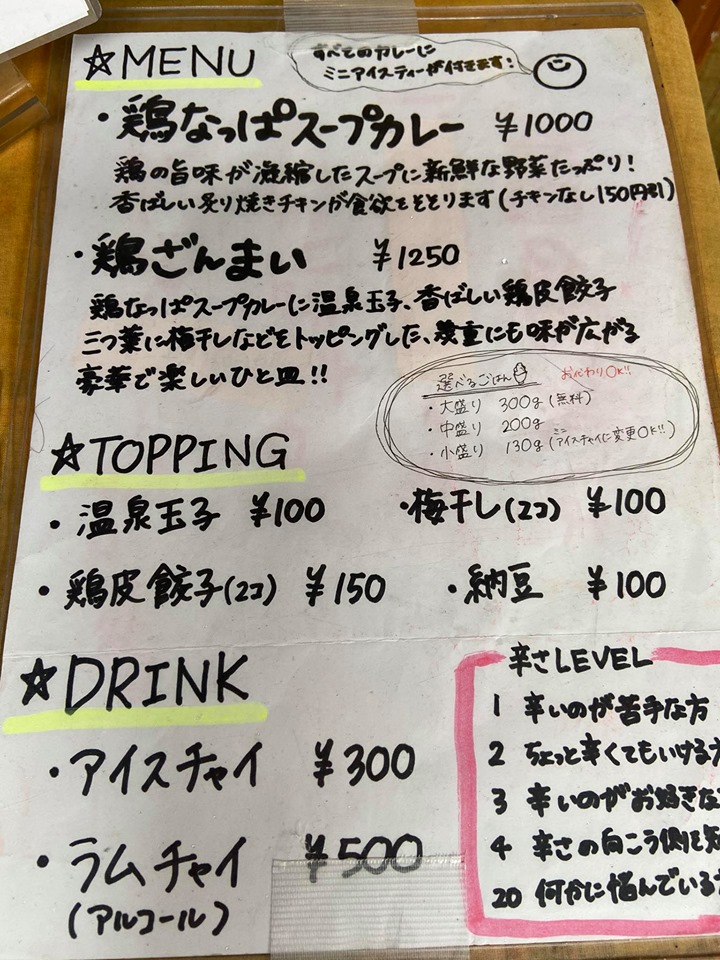 ☆MENU
すべてのカレーに
ミニアイスティーが付きます!
・鶏なっぱスープカレー ¥1000
鶏の旨味が凝縮したスープに新鮮な野菜たっぷり!
香ばしい炙り焼きチキンが食欲をそそります(チキンなし150円引)
・鶏ざんまい ¥1250
鶏なっぱスープカレーに温泉玉子、香ばしい鶏皮餃子
三つ葉に梅干しなどをトッピングした、幾重にも味が広がる
豪華で楽しいひと皿!!
選べるごはん おかわりOK!!
・大盛り 300g (無料)
・中盛り 200g
・小盛り 130g (ミニアイスチャイに変更OK!!)
☆TOPPING
・温泉玉子 ¥100 ・梅干し(2コ) ¥100
・鶏皮餃子(2コ) ¥150 ・納豆 ¥100
☆DRINK
・アイスチャイ ¥300
・ラムチャイ ¥500
(アルコール)
辛さLEVEL
1 辛いのが苦手な方
2 ちょっと辛くてもいける
3 辛いのがお好きな
4 辛さの向こう側を
20 何かに悩んでいる